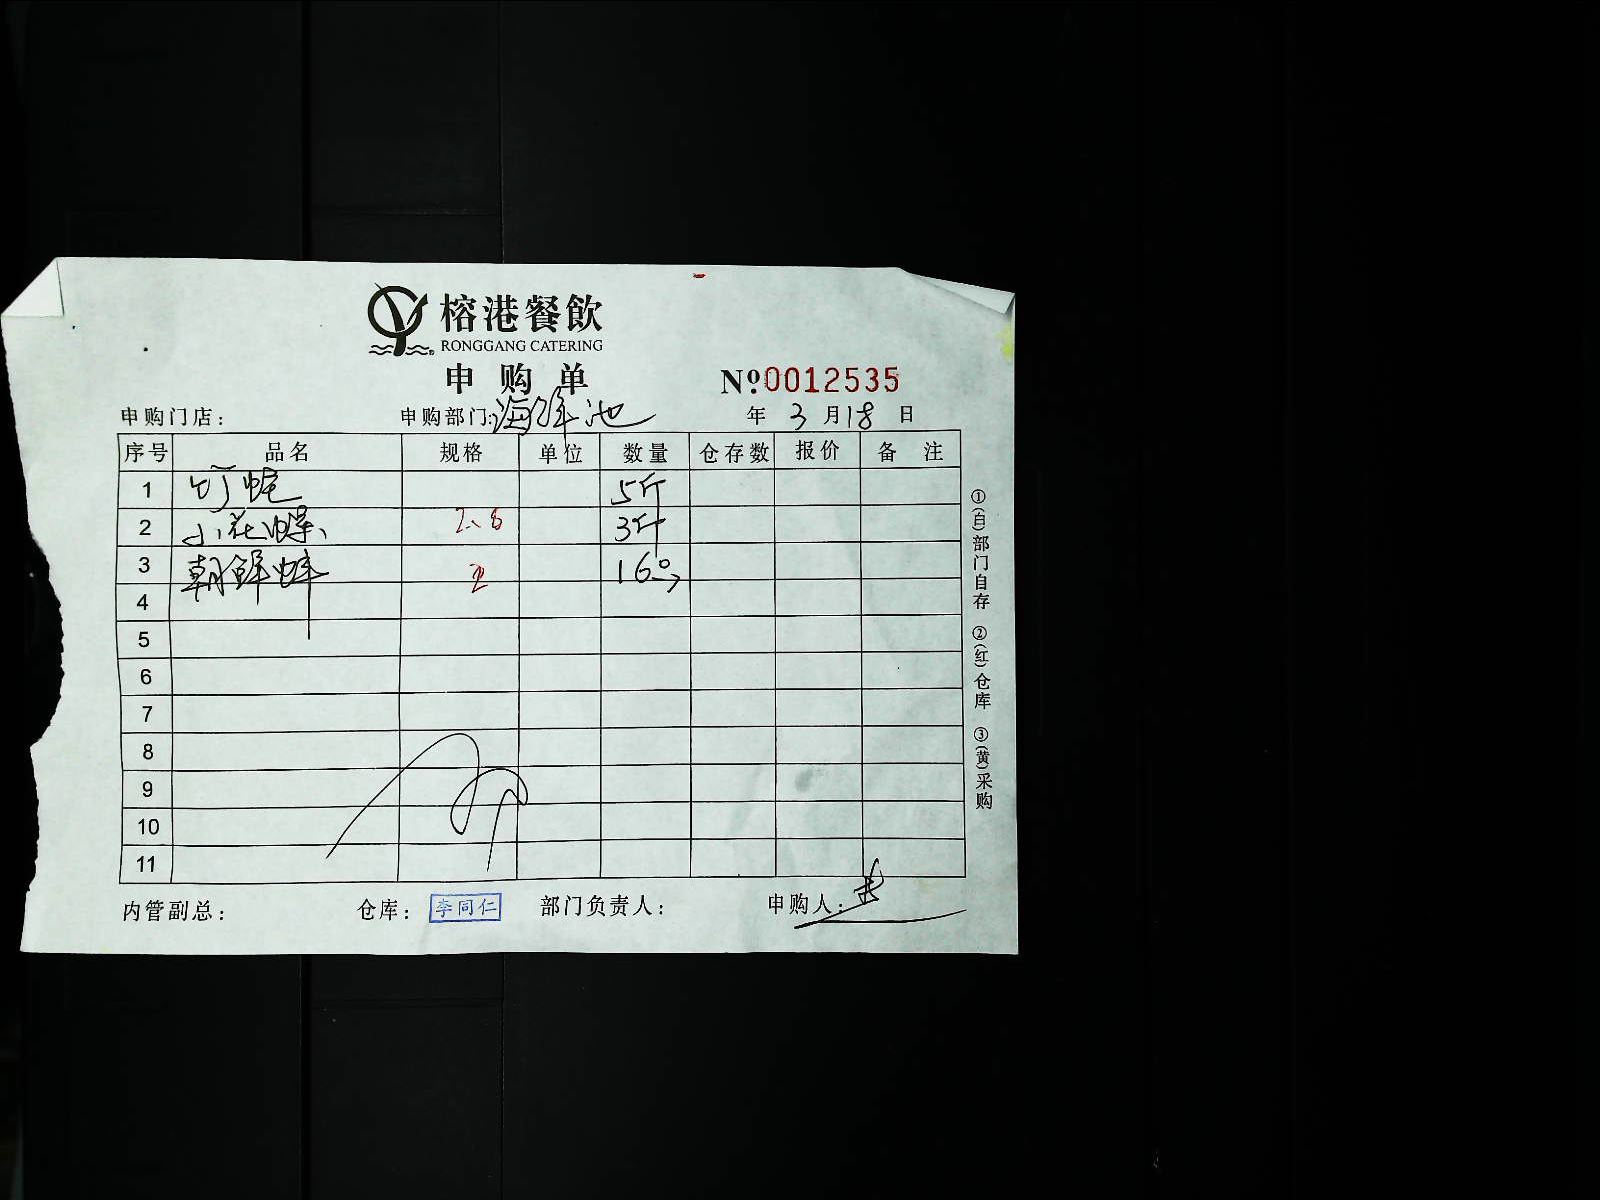 榕港餐飲
RONGGANG CATERING
申购单
№0012535
申购门店： 申购部门：海鲜池 年 3 月 18 日
序号 品名 规格 单位 数量 仓存数 报价 备注
1 5斤
2 小花螺 2.8 3斤
3 朝鲜蚌 16
4
5
6
7
8
9
10
11
内管副总： 仓库：李同仁 部门负责人： 申购人：
①(白)部门自存 ②(红)仓库 ③(黄)采购